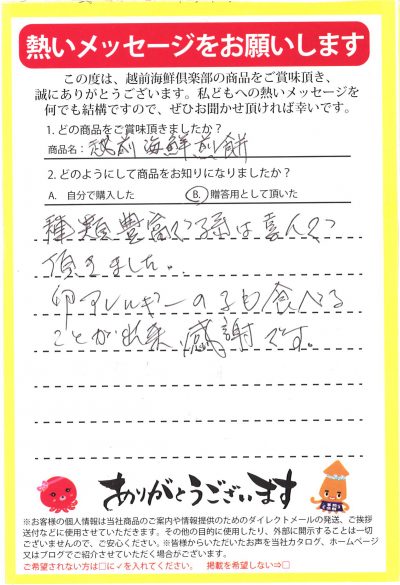 熱いメッセージをお願いします
この度は、越前海鮮倶楽部の商品をご賞味頂き、
誠にありがとうございます。私どもへの熱いメッセージを
何でも結構ですので、ぜひお聞かせ頂ければ幸いです。
1.どの商品をご賞味頂きましたか？
商品名：越前海鮮煎餅
2.どのようにして商品をお知りになりましたか？
A. 自分で購入した B. 贈答用として頂いた
種類豊富で孫は喜んで
頂きました。
卵アレルギーの子も食べる
ことが出来、感謝です。
ありがとうございます
※お客様の個人情報は当社商品のご案内や情報提供のためのダイレクトメールの発送、ご挨拶
送付などに使用させていただきます。その他の目的に使用したり、外部に開示することは一切
ございませんので、ご安心ください。※皆様からいただいたお声を当社カタログ、ホームページ
又はブログでご紹介させていただく場合がございます。
ご希望されない方は□に✓を入れてください。 掲載を希望しない⇒□